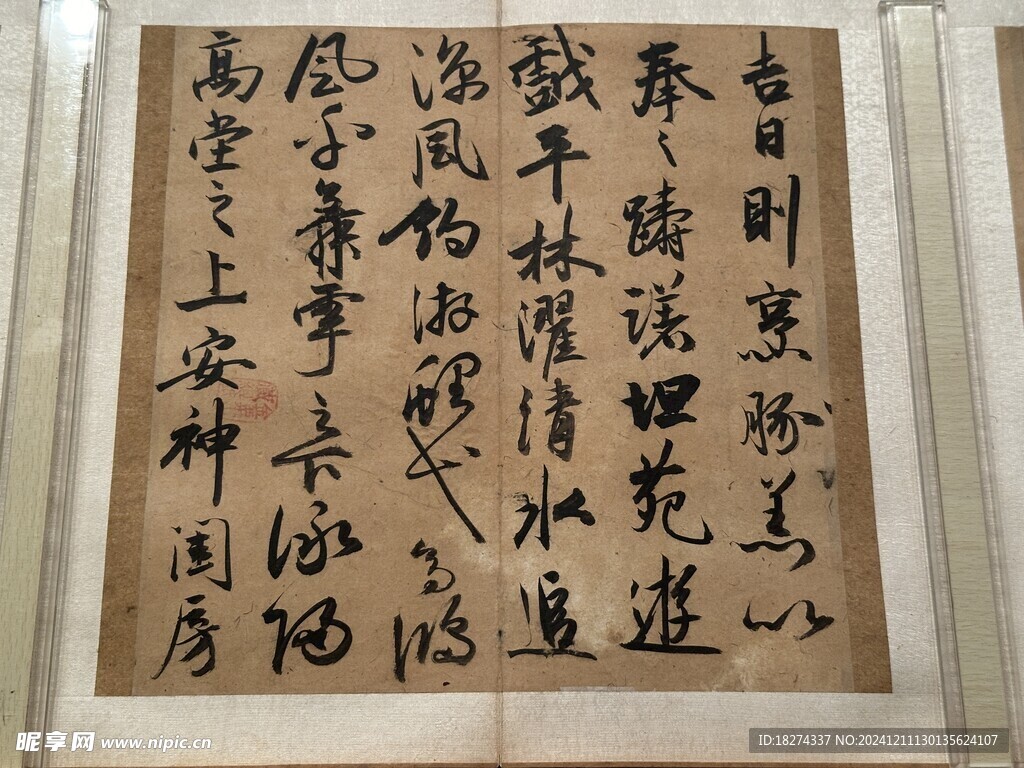 吉日則烹豚羔以
奉之躊躇坦苑遊
戲平林濯清水追
涼風釣游鯉弋高鴻
風乎舞雩之下詠歸
高堂之上安神閨房
昵享网 www.nipic.cn
ID:18274337 NO:20241211130135624107